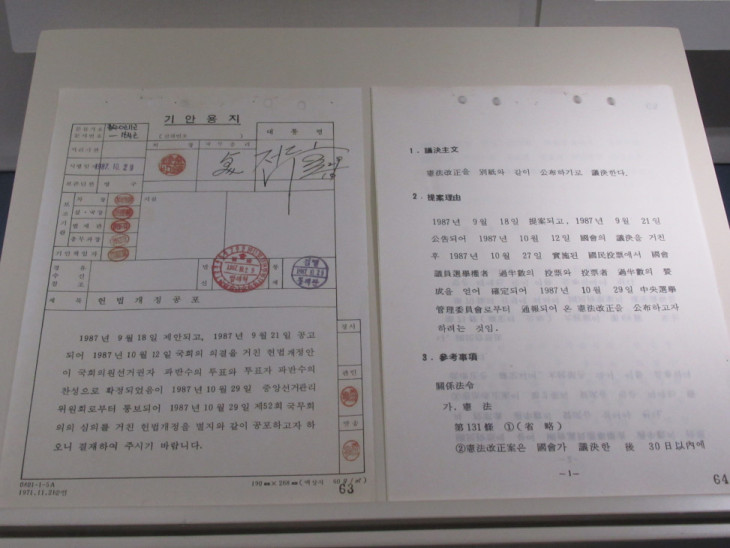 기 안 용 지
대 통 령
1987. 10. 29
제 목 헌 법 개 정 공 포
1987년 9월 18일 제안되고, 1987년 9월 21일 공고
되어 1987년 10월 12일 국회의 의결을 거친 헌법개정안
이 국회의원선거권자 과반수의 투표와 투표자 과반수의
찬성으로 확정되었음이 1987년 10월 29일 중앙선거관리
위원회로부터 통보되어 1987년 10월 29일 제52회 국무회
의의 심의를 거친 헌법개정을 별지와 같이 공포하고자 하
오니 결재하여 주시기 바랍니다.
190㎜×268㎜
63
1. 議決主文
憲法改正을 別紙와 같이 公布하기로 議決한다.
2. 提案理由
1987년 9월 18일 提案되고, 1987년 9월 21일
公告되어 1987년 10월 12일 國會의 議決을 거친
후 1987년 10월 27일 實施된 國民投票에서 國會
議員選擧權者 過半數의 投票와 投票者 過半數의 贊
成을 얻어 確定되어 1987년 10월 29일 中央選擧
管理委員會로부터 通報되어 온 憲法改正을 公布하고자
하려는 것임.
3. 參考事項
關係法令
가. 憲 法
第131條 ①(省 略)
②憲法改正案은 國會가 議決한 後 30日以內에
－1－
64